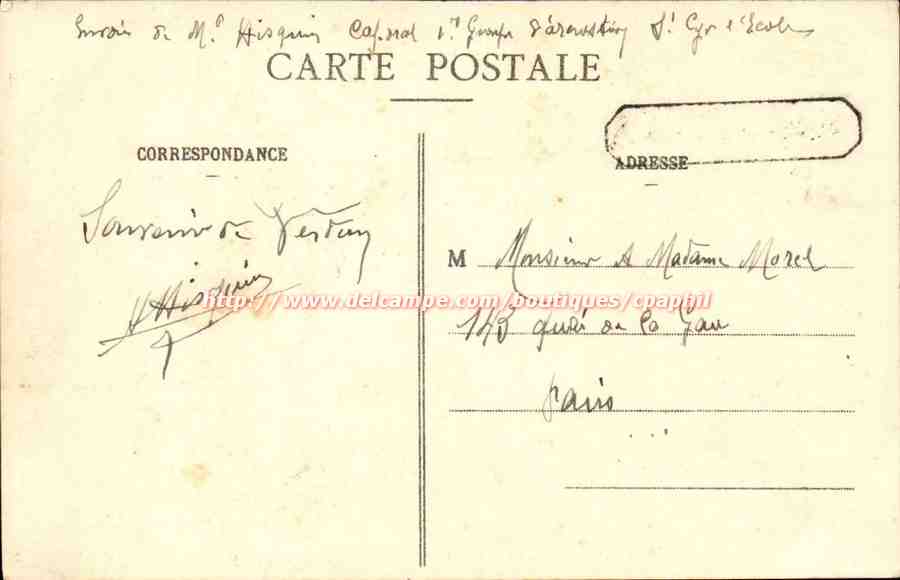 Envoi de Mr Hisquin Caporal 1er Groupe d'aérostiers St Cyr l'Ecole
CARTE POSTALE
CORRESPONDANCE
ADRESSE
Souvenir de Verdun
Hisquin
M Monsieur & Madame Morel
143 quai de la Gare
Paris
http://www.delcampe.com/boutiques/cpaphil